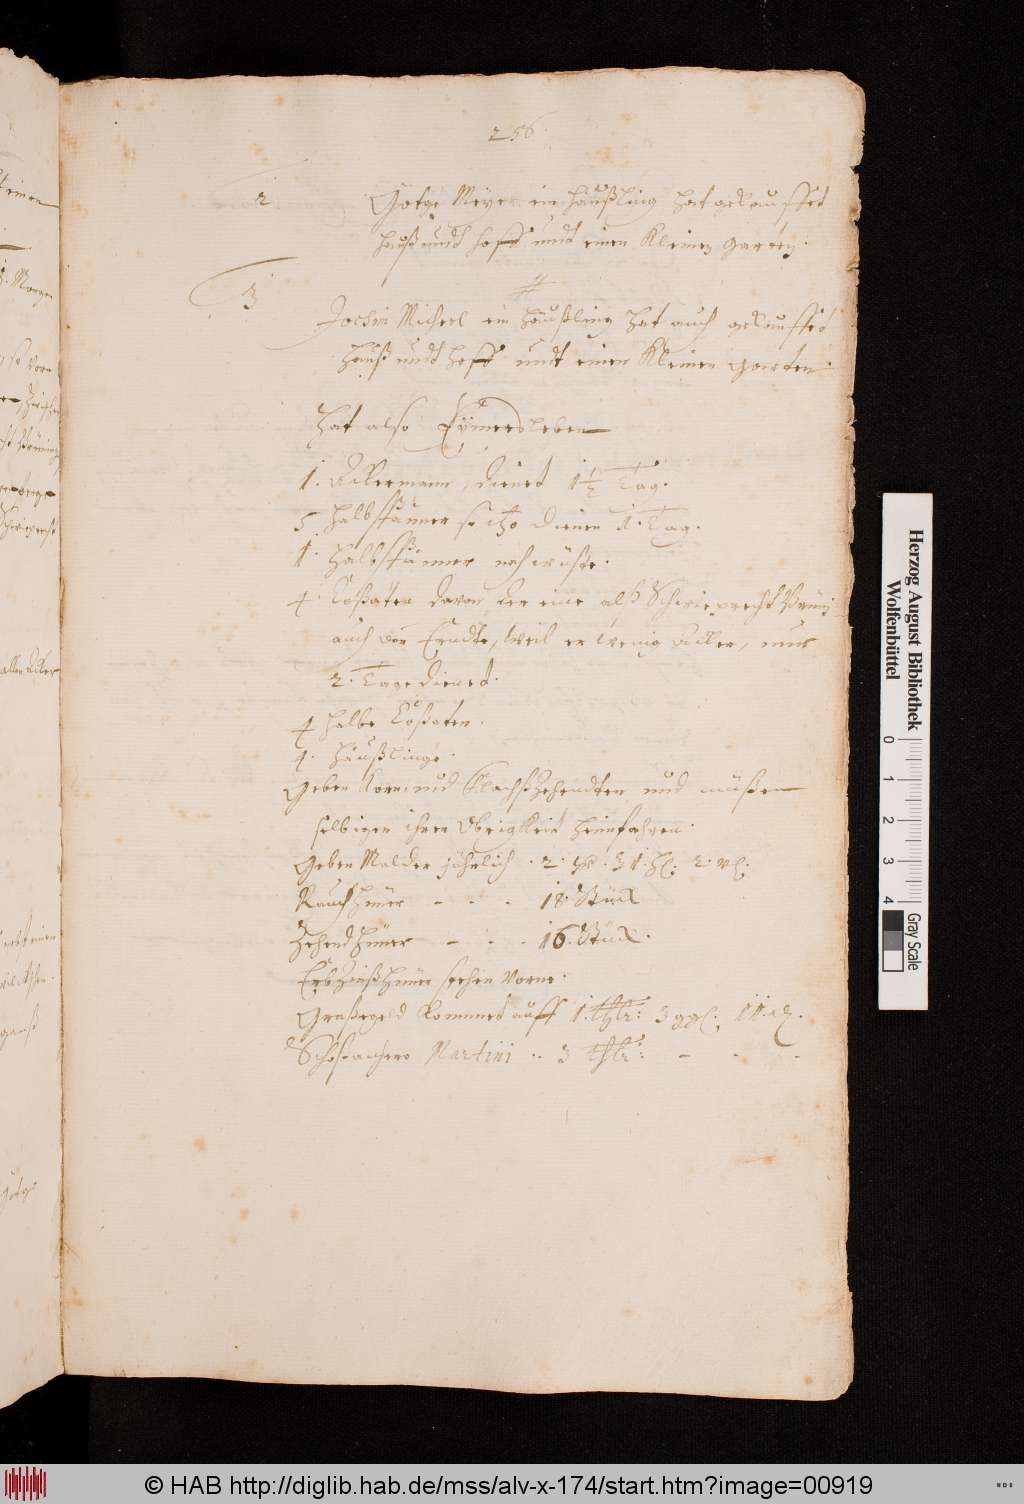 256
2 Gotge Meyer ein häußling hat gekauffet
hauß undt hoff undt einen Kleinen garten.
3
Jochim Micheel ein häußling hat auch gekauffet
hauß undt hoff undt einen Kleinen garten.
Hat also Eymersleben
1. Ackermann, dienet 1½ Tag.
5 halbspänner so itzo dienen 1. Tag.
1. halbspänner noch wüste.
4. Coßaten davon der eine alß Schweprecht
auch vor Erndte, weil er wenig Acker, nur
2. Tage dienet.
4 halbe Coßaten.
4. häußlinge.
Geben Korn und Flachßzehendten und müßen
selbigen ihrer Obrigkeit heimfahren.
Geben Malder jährlich . 2. 31. 2.
Rauchhüner - - - 18. Stück
Zehendhüner - - - 16. Stück.
Erbzinßhüner stehen vorne.
Graßegeld kommet auff 1. thlr: 3 ggl. 11. ₰.
Martini .. 3 thlr: - - -
Morgen
so vorn
aller Acker
Herzog August Bibliothek
Wolfenbüttel
0 1 2 3 4
Gray Scale
© HAB http://diglib.hab.de/mss/alv-x-174/start.htm?image=00919